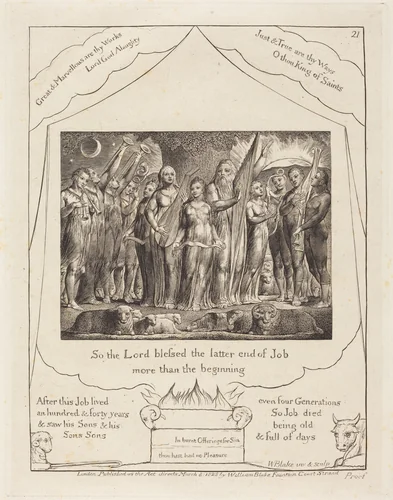 21
Great & Marvellous are thy Works
Lord God Almighty
Just & True are thy Ways
O thou King of Saints
So the Lord blessed the latter end of Job
more than the beginning
After this Job lived
an hundred & forty years
& saw his Sons & his
Sons Sons
even four Generations
So Job died
being old
& full of days
In burnt Offerings for Sin
thou hast had no Pleasure
W Blake inv & sculp
London. Published as the Act directs March 8: 1825 by William Blake Fountain Court Strand
Proof